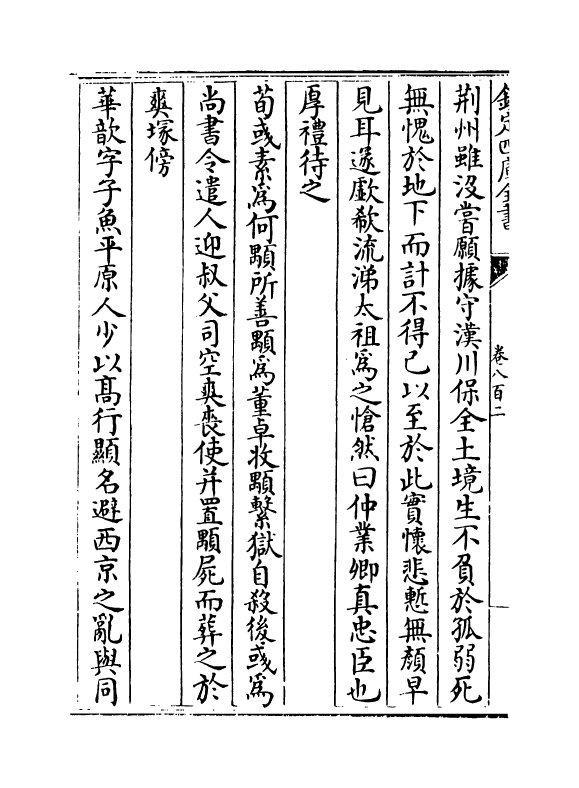 欽定四庫全書
卷八百二
荆州雖没嘗願據守漢川保全土境生不負於孤弱死
無愧於地下而計不得已以至於此實懷悲慙無顔早
見耳遂歔欷流涕太祖爲之愴然曰仲業卿真忠臣也
厚禮待之
荀彧素爲何顒所善顒爲董卓收顒繫獄自殺後彧爲
尚書令遣人迎叔父司空爽喪使并置顒屍而葬之於
爽塚傍
華歆字子魚平原人少以髙行顯名避西京之亂與同